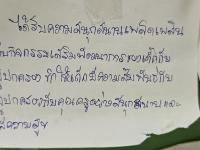 ได้รับความสนุกสนานเพลิดเพลิน
กิจกรรมเสริมพัฒนาการของเด็กกับ
ปกครอง ทำให้เด็กมีความสัมพันธ์กับ
ปกครองกับคุณครูอย่างสนุกสนาน และ
มีความสุข